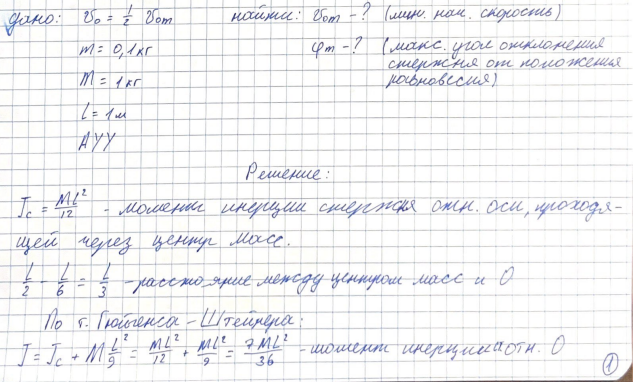 дано: υ₀ = 1/2 υ₀m найти: υ₀m - ? (мин. нач. скорость)
m = 0,1 кг φm - ? (макс. угол отклонения
стержня от положения
равновесия)
M = 1 кг
L = 1 м
АУУ
Решение:
Jc = ML²/12 - момент инерции стержня отн. оси, проходя-
щей через центр масс.
L/2 - L/6 = L/3 - расстояние между центром масс и О
По т. Гюйгенса-Штейнера:
J = Jc + M L²/9 = ML²/12 + ML²/9 = 7ML²/36 - момент инерции отн. О
1